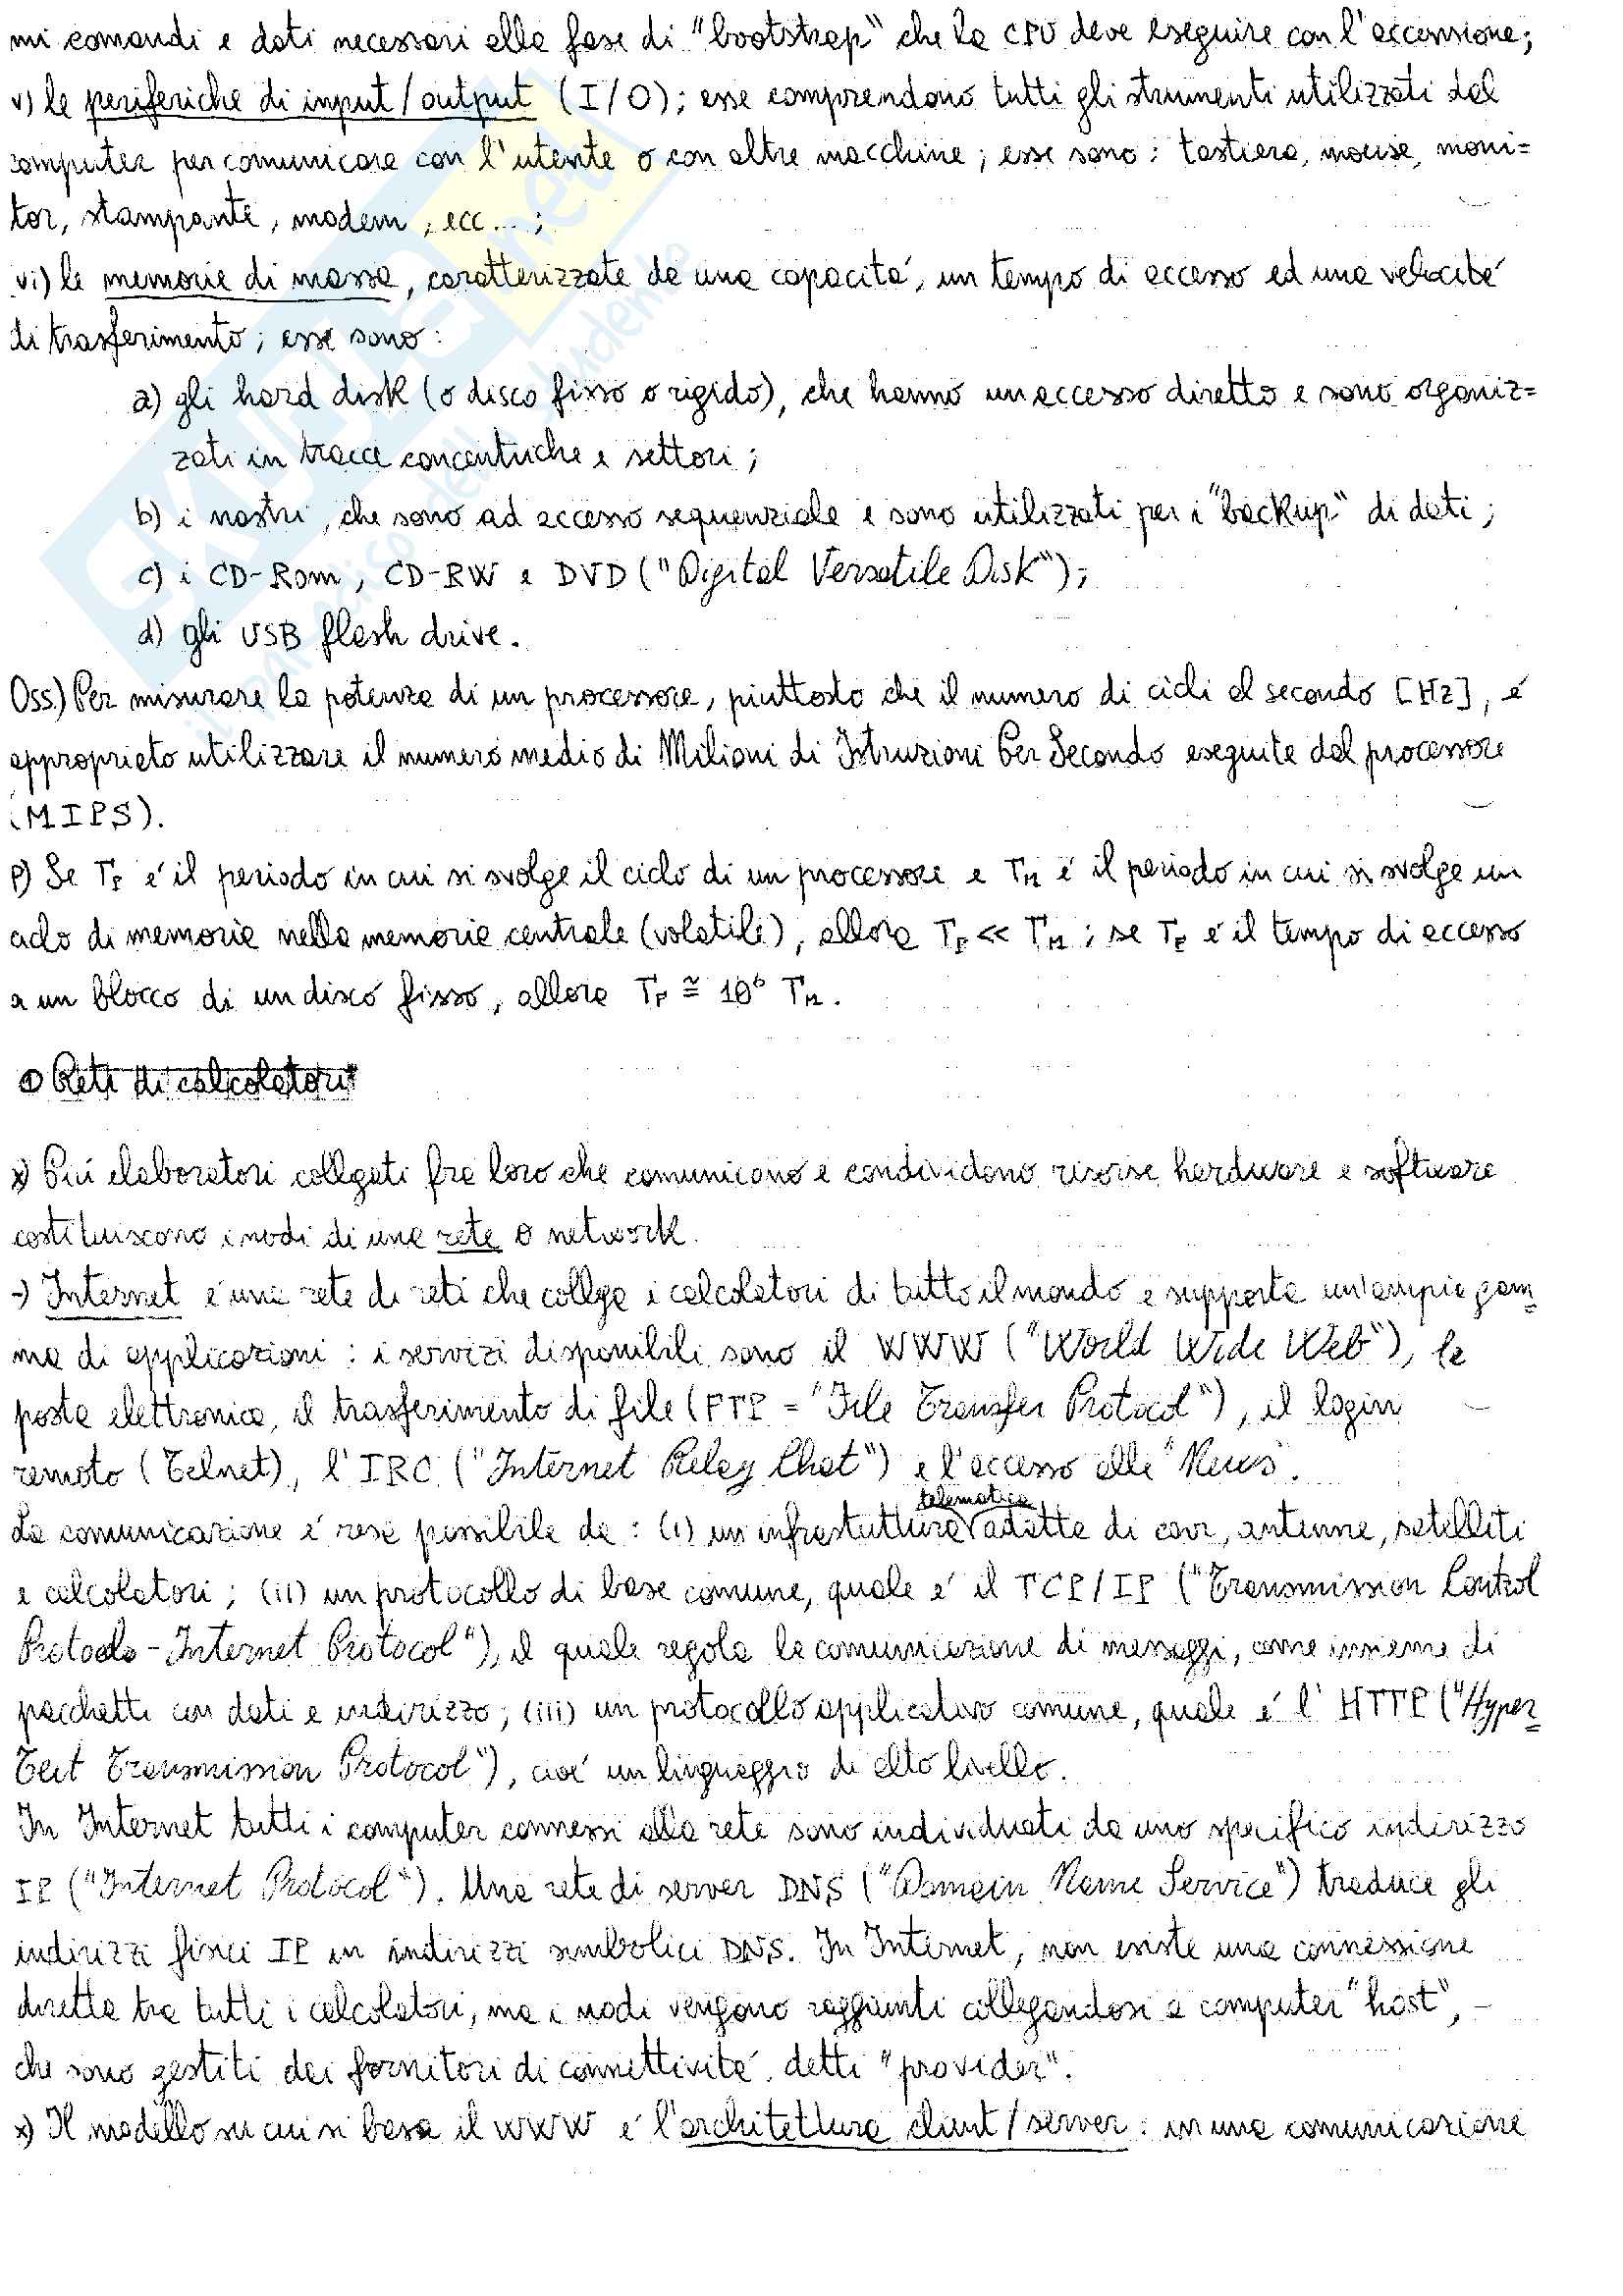 mi comandi e dati necessari alla fase di "bootstrap" che la CPU deve eseguire con l'accensione;
v) le periferiche di input/output (I/O); esse comprendono tutti gli strumenti utilizzati dal
computer per comunicare con l'utente o con altre macchine; esse sono: tastiera, mouse, moni=
tor, stampante, modem, ecc...;
vi) le memorie di massa, caratterizzate da una capacitá, un tempo di accesso ed una velocitá
di trasferimento; esse sono:
a) gli hard disk (o disco fisso o rigido), che hanno un accesso diretto e sono organiz=
zati in tracce concentriche e settori;
b) i nastri, che sono ad accesso sequenziale e sono utilizzati per i "backup" di dati;
c) i CD-Rom, CD-RW e DVD ("Digital Versatile Disk");
d) gli USB flash drive.
Oss.) Per misurare la potenza di un processore, piuttosto che il numero di cicli al secondo [Hz], é
appropriato utilizzare il numero medio di Milioni di Istruzioni Per Secondo eseguite dal processore
(MIPS).
P) Se TP é il periodo in cui si svolge il ciclo di un processore e TM é il periodo in cui si svolge un
ciclo di memoria nella memoria centrale (volatile), allora TP << TM; se TF é il tempo di accesso
a un blocco di un disco fisso, allora TF ≅ 10⁶ TM.
① Reti di calcolatori
x) Piú elaboratori collegati fra loro che comunicano e condividono risorse hardware e software
costituiscono i nodi di una rete o network.
→) Internet é una rete di reti che collega i calcolatori di tutto il mondo e supporta un'ampia gam=
ma di applicazioni: i servizi disponibili sono il WWW ("World Wide Web"), la
posta elettronica, il trasferimento di file (FTP = "File Transfer Protocol"), il login
remoto (Telnet), l'IRC ("Internet Relay Chat") e l'accesso alle "News".
La comunicazione é resa possibile da: (i) un'infrastuttura telematica adatta di cavi, antenne, satelliti
e calcolatori; (ii) un protocollo di base comune, quale é il TCP/IP ("Transmission Control
Protocolo-Internet Protocol"), il quale regola la comunicazione di messaggi, come insieme di
pacchetti con dati e indirizzo; (iii) un protocollo applicativo comune, quale é l'HTTP ("Hyper=
Text Transmission Protocol"), cioé un linguaggio di alto livello.
In Internet tutti i computer connessi alla rete sono individuati da uno specifico indirizzo
IP ("Internet Protocol"). Una rete di server DNS ("Domain Name Service") traduce gli
indirizzi fisici IP in indirizzi simbolici DNS. In Internet, non esiste una connessione
diretta tra tutti i calcolatori, ma i nodi vengono raggiunti collegandosi a computer "host",
che sono gestiti dai fornitori di connettivitá detti "provider".
x) Il modello su cui si basa il WWW é l'architettura client/server: in una comunicazione